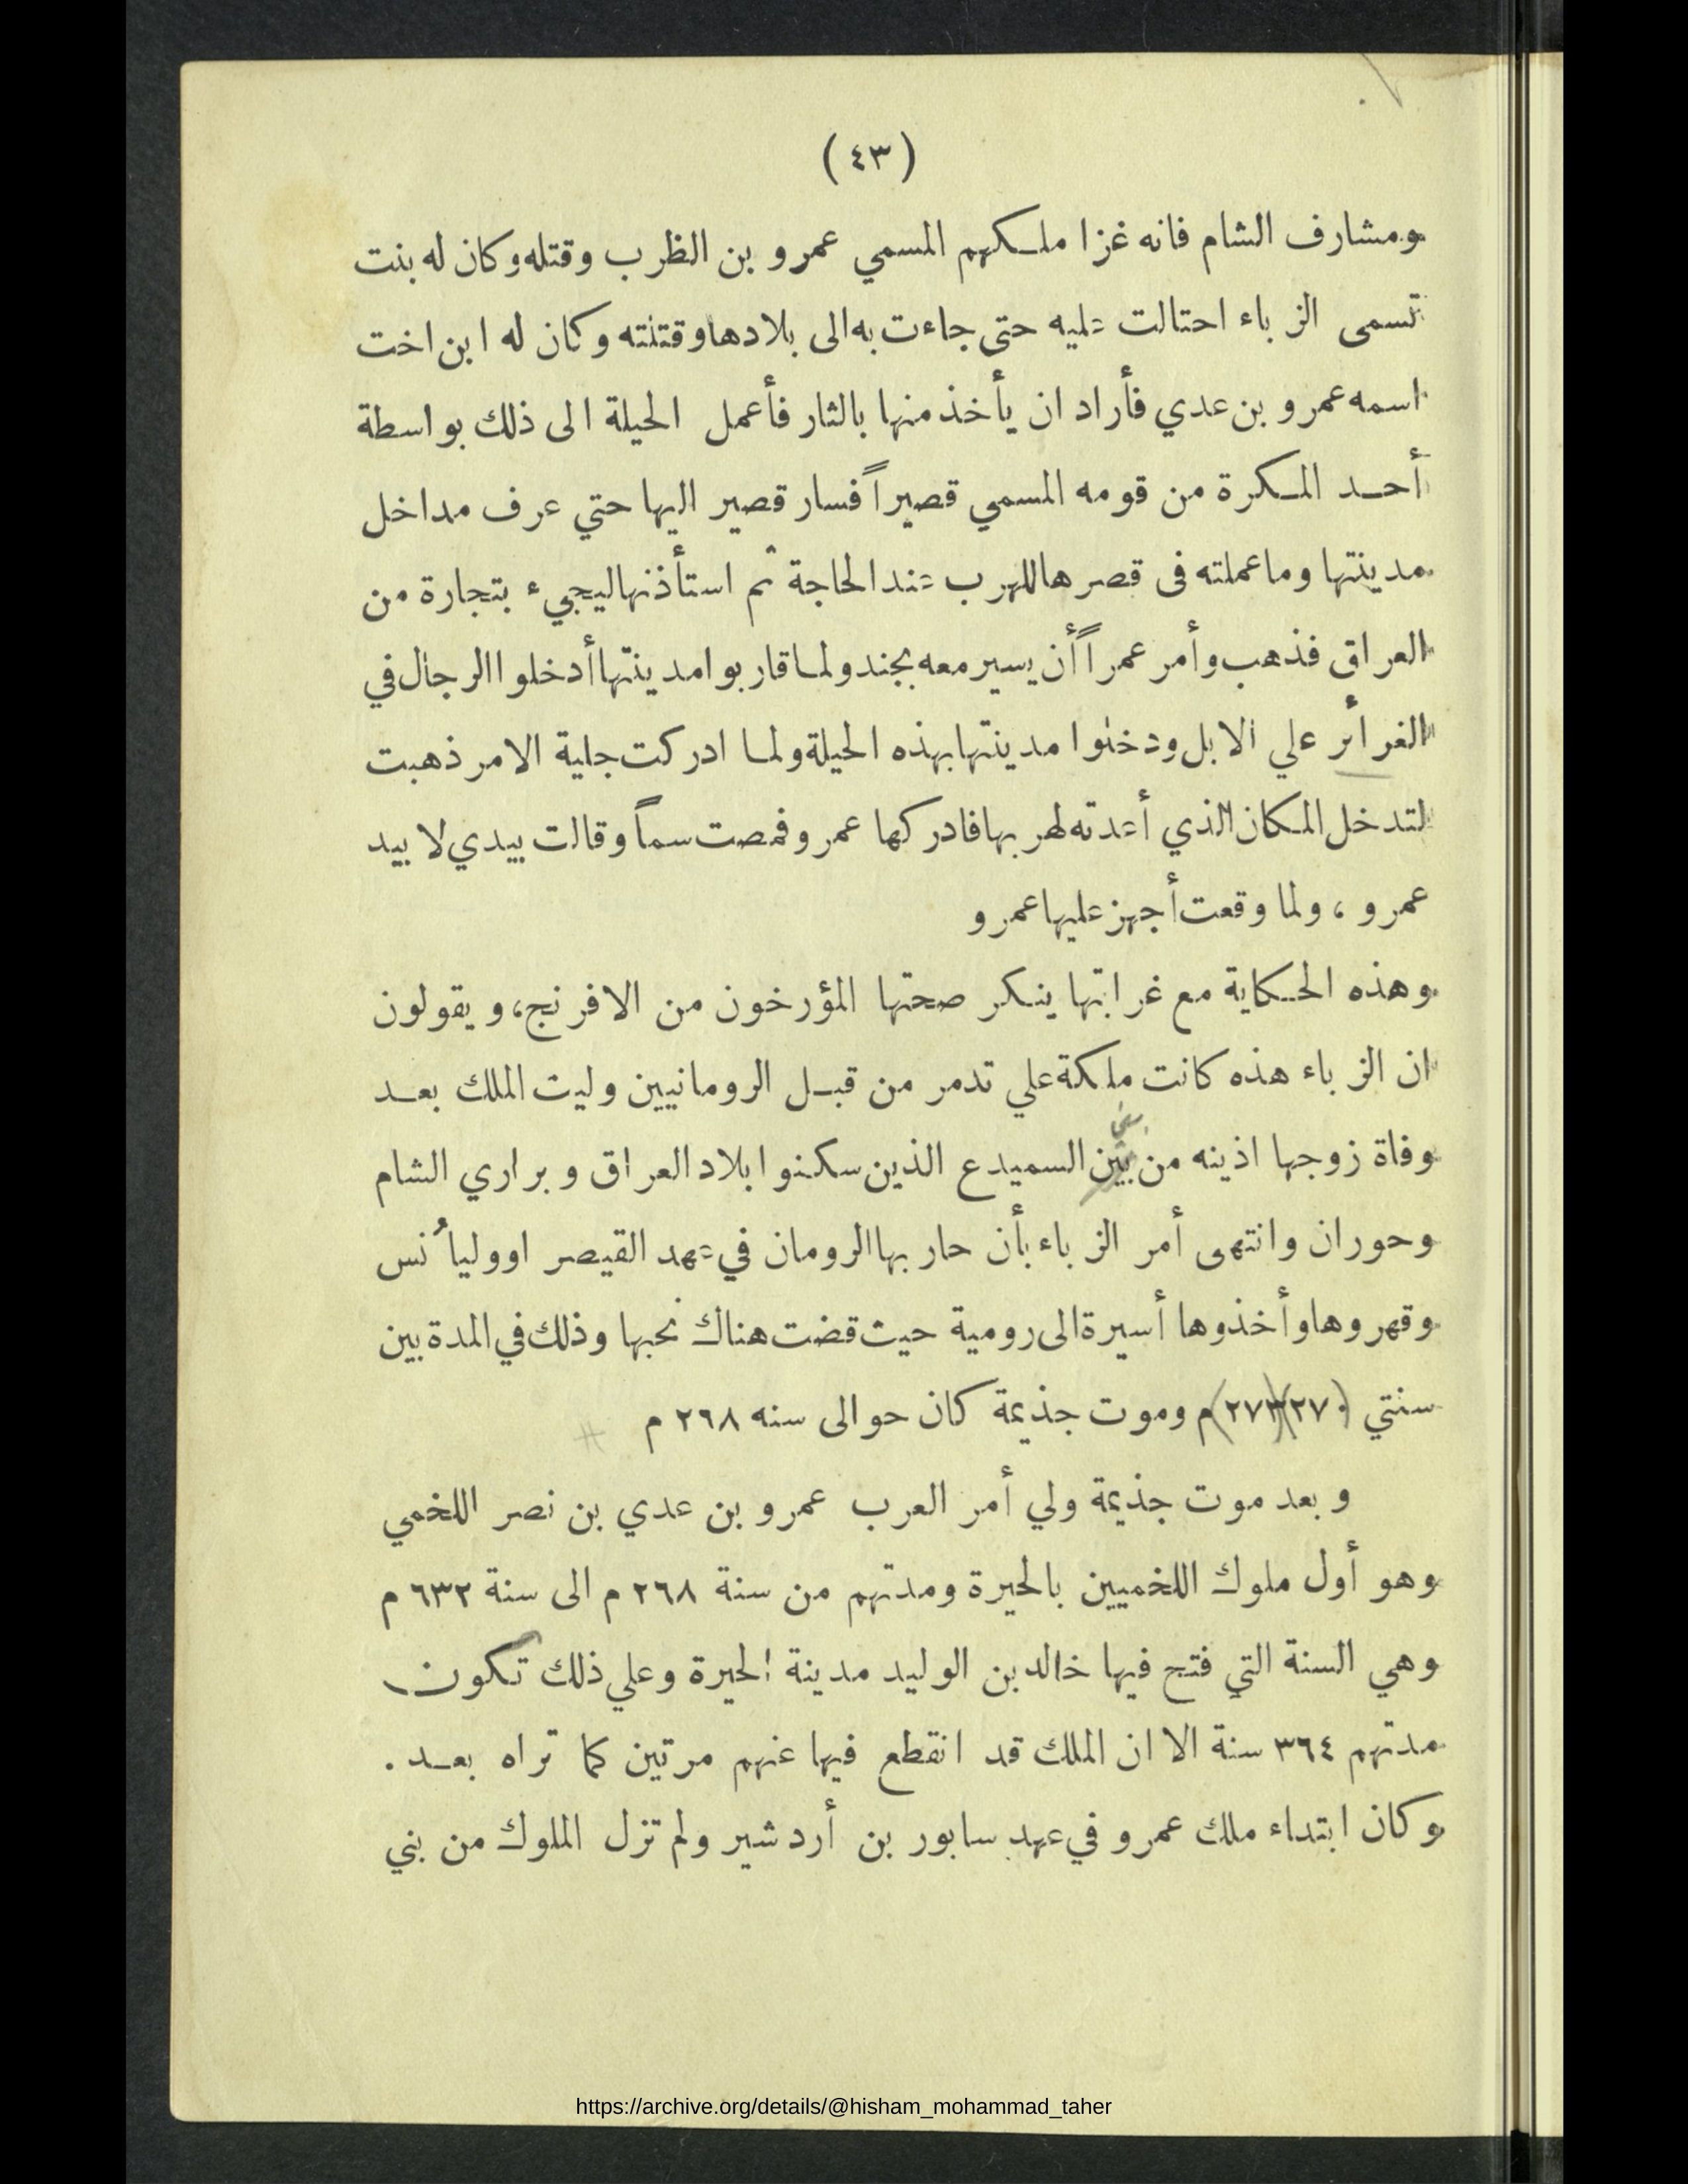 (٤٣)
ومشارف الشام فانه غزا ملكهم المسمي عمرو بن الظرب وقتله وكان له بنت
تسمى الزباء احتالت عليه حتى جاءت به الى بلادها وقتلته وكان له ابن اخت
اسمه عمرو بن عدي فأراد ان يأخذ منها بالثار فأعمل الحيلة الى ذلك بواسطة
أحد المكرة من قومه المسمي قصيراً فسار قصير اليها حتي عرف مداخل
مدينتها وما عملته فى قصرها للهرب عند الحاجة ثم استأذنها ليجيء بتجارة من
العراق فذهب وأمر عمراً أن يسير معه بجند ولما قاربوا مدينتها أدخلوا الرجال في
الغرائر علي الابل ودخلوا مدينتها بهذه الحيلة ولما ادركت جلية الامر ذهبت
لتدخل المكان الذي أعدته لهربها فادركها عمرو فمصت سماً وقالت بيدي لا بيد
عمرو ، ولما وقعت أجهز عليها عمرو
وهذه الحكاية مع غرابتها ينكر صحتها المؤرخون من الافرنج، ويقولون
ان الزباء هذه كانت ملكة علي تدمر من قبل الرومانيين وليت الملك بعد
وفاة زوجها اذينه من بين السميدع الذين سكنوا بلاد العراق وبراري الشام
وحوران وانتهى أمر الزباء بأن حاربها الرومان في عهد القيصر اوولياُنس
وقهروها وأخذوها أسيرة الى رومية حيث قضت هناك نحبها وذلك في المدة بين
سنتي (٢٧٠)(٢٧٣)م وموت جذيمة كان حوالى سنه ٢٦٨ م
وبعد موت جذيمة ولي أمر العرب عمرو بن عدي بن نصر اللخمي
وهو أول ملوك اللخميين بالحيرة ومدتهم من سنة ٢٦٨ م الى سنة ٦٣٢ م
وهي السنة التي فتح فيها خالد بن الوليد مدينة الحيرة وعلي ذلك تكون
مدتهم ٣٦٤ سنة الا ان الملك قد انقطع فيها عنهم مرتين كما تراه بعد .
وكان ابتداء ملك عمرو في عهد سابور بن أردشير ولم تزل الملوك من بني
https://archive.org/details/@hisham_mohammad_taher